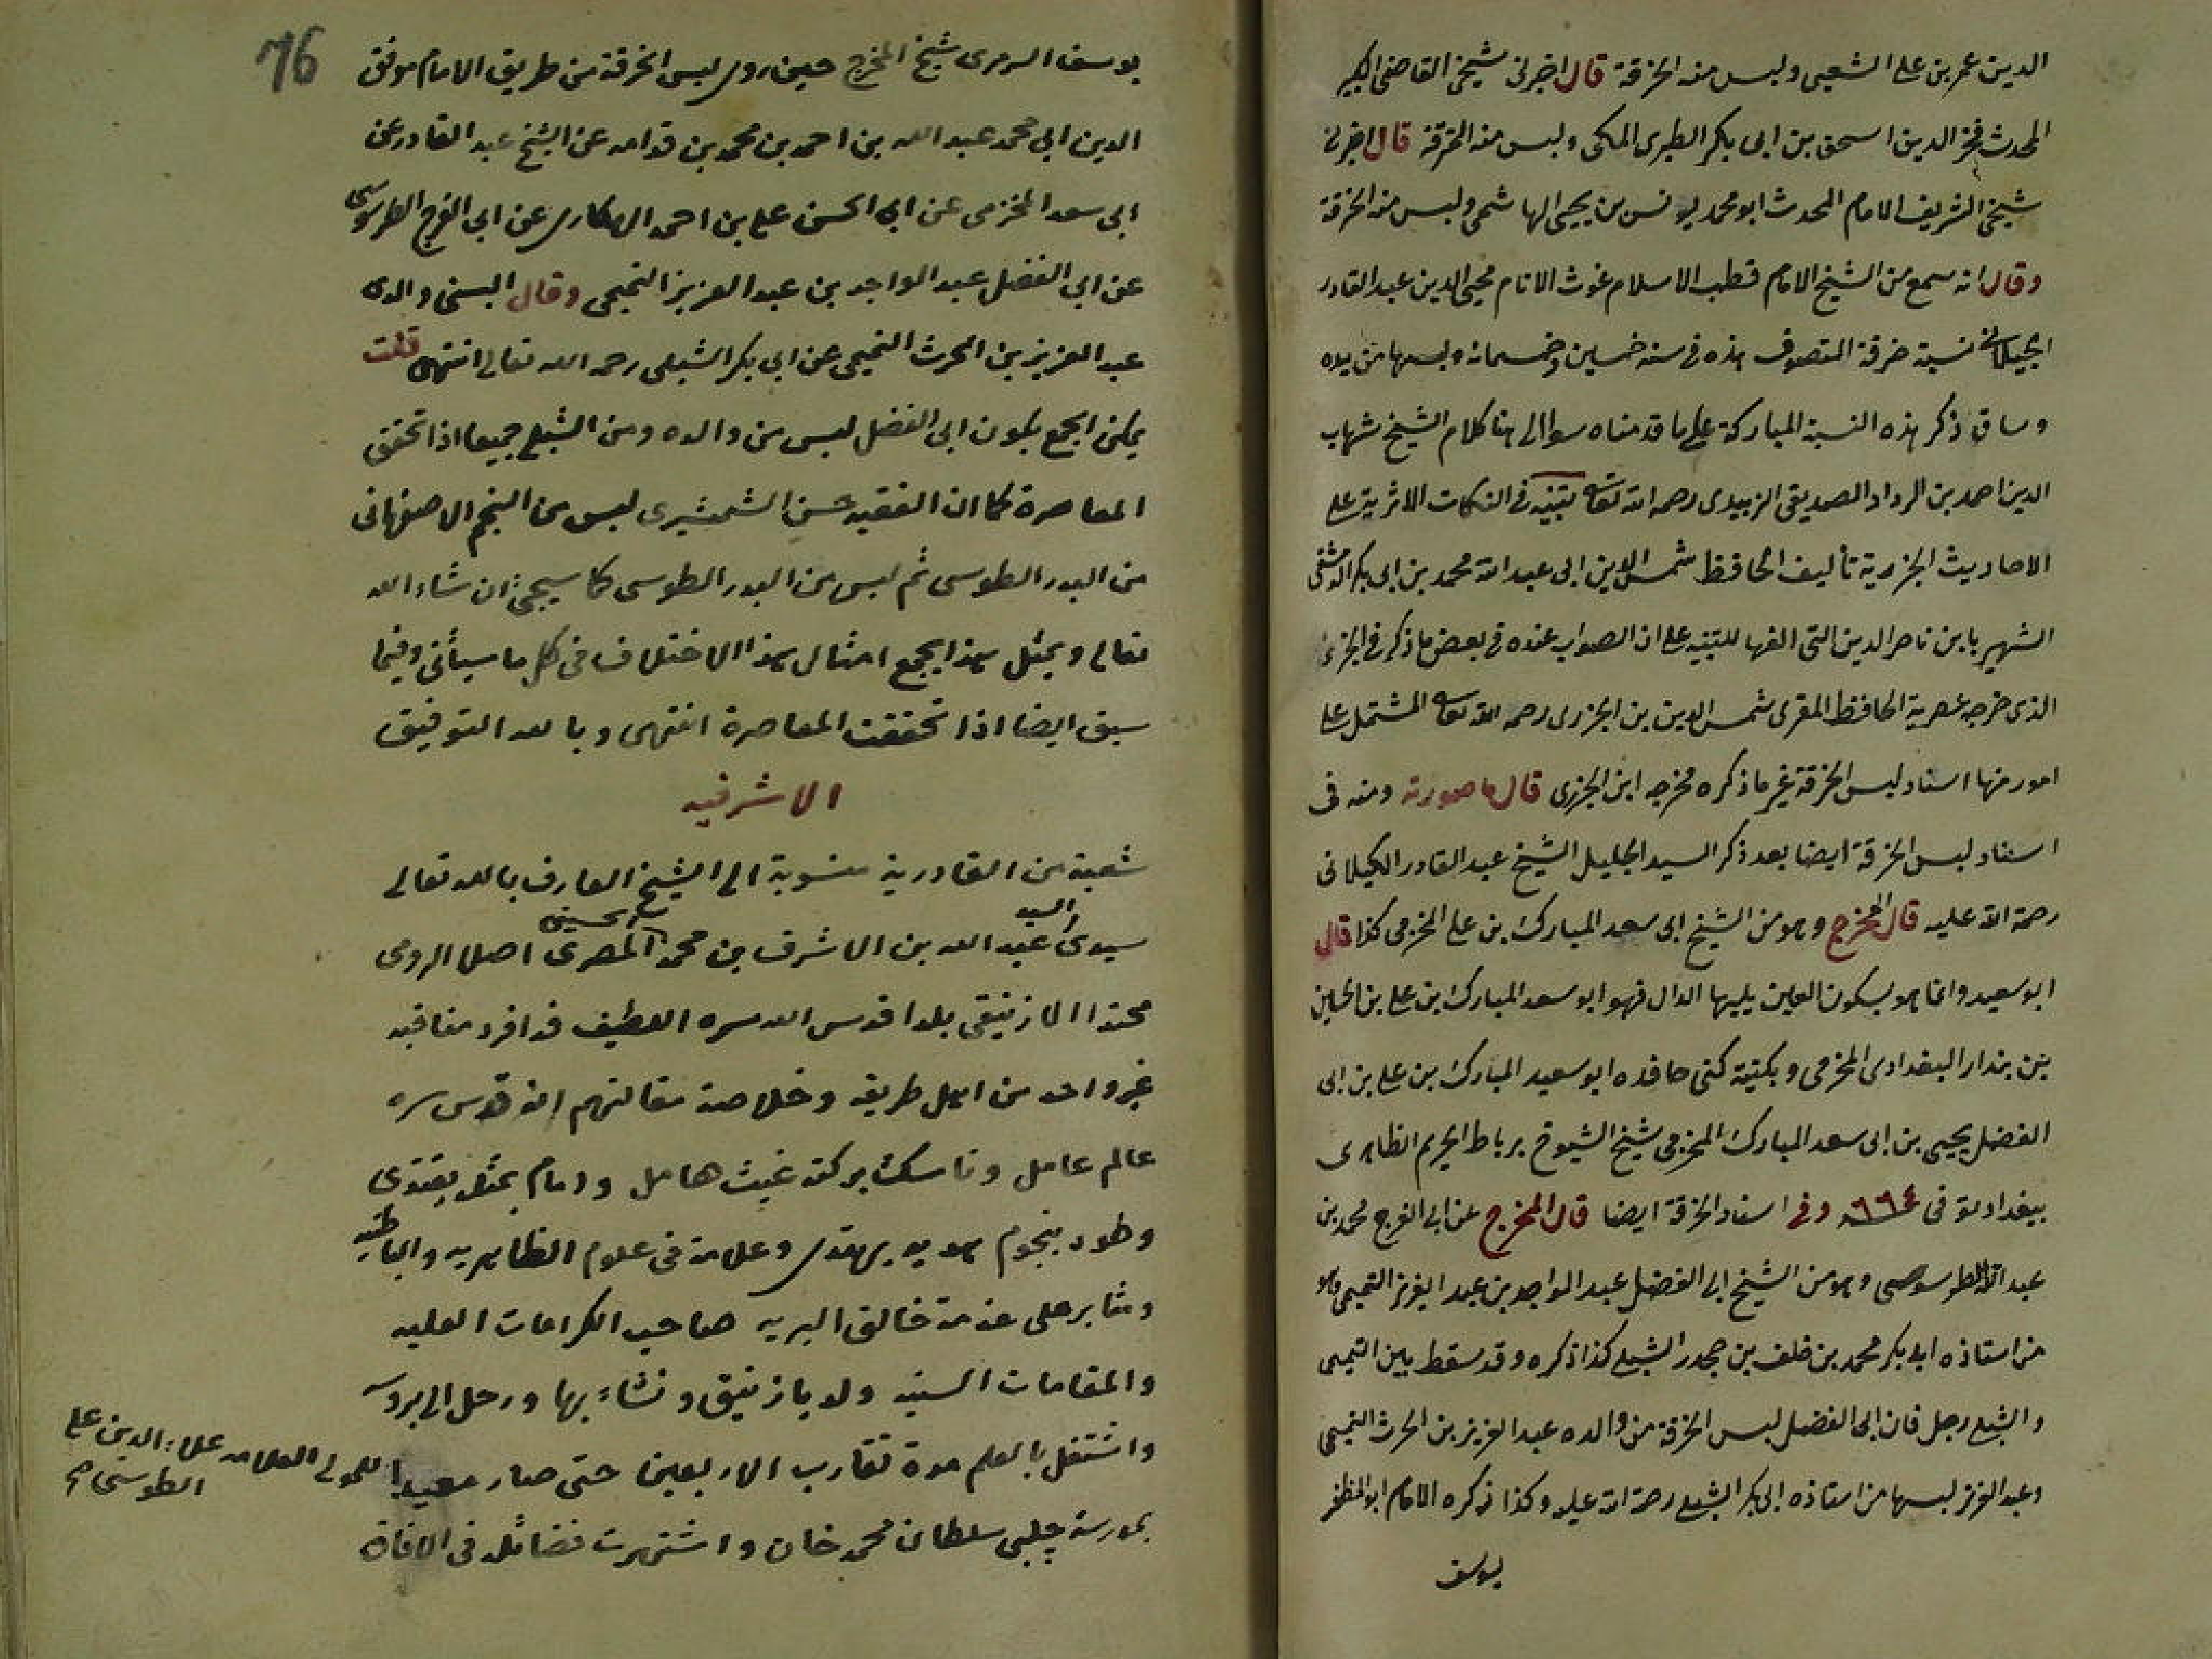 الدين عمر بن على الشعبى ولبس منه الخرقة قال اخبرنى شيخى القاضى الكبير
المحدث فخر الدين اسحق بن ابى بكر الطبرى المكى ولبس منه الخرقة قال اخبرنى
شيخى الشريف الامام المحدث ابو محمد يونس بن يحيى الهاشمى ولبس منه الخرقة
وقال انه سمع من الشيخ الامام قطب الاسلام غوث الانام محيى الدين عبد القادر
الجيلانى نسبة خرقة التصوف هذه فى سنة خمسين وخمسمائة ولبسها من يده
وساق ذكر هذه النسبة المباركة على ما قدمناه سوا الى هنا كلام الشيخ شهاب
الدين احمد بن الرداد الصديقى الزبيدى رحمه الله تعالى تنبيه فى النكات الاثرية على
الاحاديث الجزرية تأليف الحافظ شمس الدين ابى عبد الله محمد بن ابى بكر الدمشقى
الشهير بابن ناصر الدين التى الفها للتنبيه على ان الصواب عنده فى بعض ما ذكر فى الجزء
الذى خرجه عصريه الحافظ المقرى شمس الدين بن الجزرى رحمه الله تعالى المشتمل على
امور منها اسناد لبس الخرقة غير ما ذكره مخرجه ابن الجزرى قال ما صورته ومنه فى
اسناد لبس الخرقة ايضا بعد ذكر السيد الجليل الشيخ عبد القادر الكيلانى
رحمة الله عليه قال المخرج وهو من الشيخ ابى سعد المبارك بن على المخزمى كذا قال
ابو سعيد وانما هو بسكون العين يليها الدال فهو ابو سعد المبارك بن على بن الحسين
بن بندار البغدادى المخرمى وبكنيته كنى حافده ابو سعيد المبارك بن على بن ابى
الفضل يحيى بن ابى سعد المبارك المخرمى شيخ الشيوخ برباط الحريم الظاهرى
ببغداد توفى ٦٦٤ وفى اسناد الخرقة ايضا قال المخرج عن ابى الفرج محمد بن
عبد الله الطرسوسى وهو من الشيخ ابى الفضل عبد الواحد بن عبد العزيز التميمى وهو
من استاذه ابى بكر محمد بن خلف بن جحدر الشبلى كذا ذكره وقد سقط بين التميمى
والشبلى رجل فان ابى الفضل لبس الخرقة من والده عبد العزيز بن الحرث التميمى
وعبد العزيز لبسها من استاذه ابى بكر الشبلى رحمة الله عليه وكذا ذكره الامام ابو المظفر
يوسف
76
يوسف السرمرى شيخ المخرج حين روى لبس الخرقة من طريق الامام موفق
الدين ابى محمد عبد الله بن احمد بن محمد بن قدامه عن الشيخ عبد القادر عن
ابى سعد المخزمى عن ابى الحسن على بن احمد الهكارى عن ابى الفرج الطرسوسى
عن ابى الفضل عبد الواحد بن عبد العزيز التميمى وقال البسنى والدى
عبد العزيز بن الحرث التميمى عن ابى بكر الشبلى رحمه الله تعالى انتهى قلت
يمكن الجمع بكون ابى الفضل لبس من والده ومن الشبلى جميعا اذا تحقق
المعاصرة كما ان الفقيه حسن الشمشيرى لبس من النجم الاصفهانى
من البدر الطوسى ثم لبس من البدر الطوسى كما سيجئ ان شاء الله
تعالى وبمثل هذا يجمع امثال هذا الاختلاف فى كل ما سيأتى وفيما
سبق ايضا اذا تحققت المعاصرة انتهى وبالله التوفيق
الاشرفيه
شعبة من القادرية منسوبة الى الشيخ العارف بالله تعالى
سيدى السيد عبد الله بن الاشرف بن محمد الحسينى المصرى اصلا الرومى
محتدا الازنيقى بلدا قدس الله سره اللطيف قد افرد مناقبه
غير واحد من اهل طريقه وخلاصة مقالتهم انه قدس سره
عالم عامل وناسك بركته غيث هامل وامام بمثله يقتدى
وطود بنجوم هديه يهتدى وعلامة فى علوم الظاهريه والباطنيه
ومثابر على خدمة خالق البريه صاحب الكرامات العليه
والمقامات السنيه ولد بازنيق ونشاء بها ورحل الى بروسه
واشتغل بالعلم مدة تقارب الاربعين حتى صار معيدا للمولى العلامه علاء الدين على
الطوسى صح
بمدرسة چلبى سلطان محمد خان واشتهرت فضائله فى الافاق